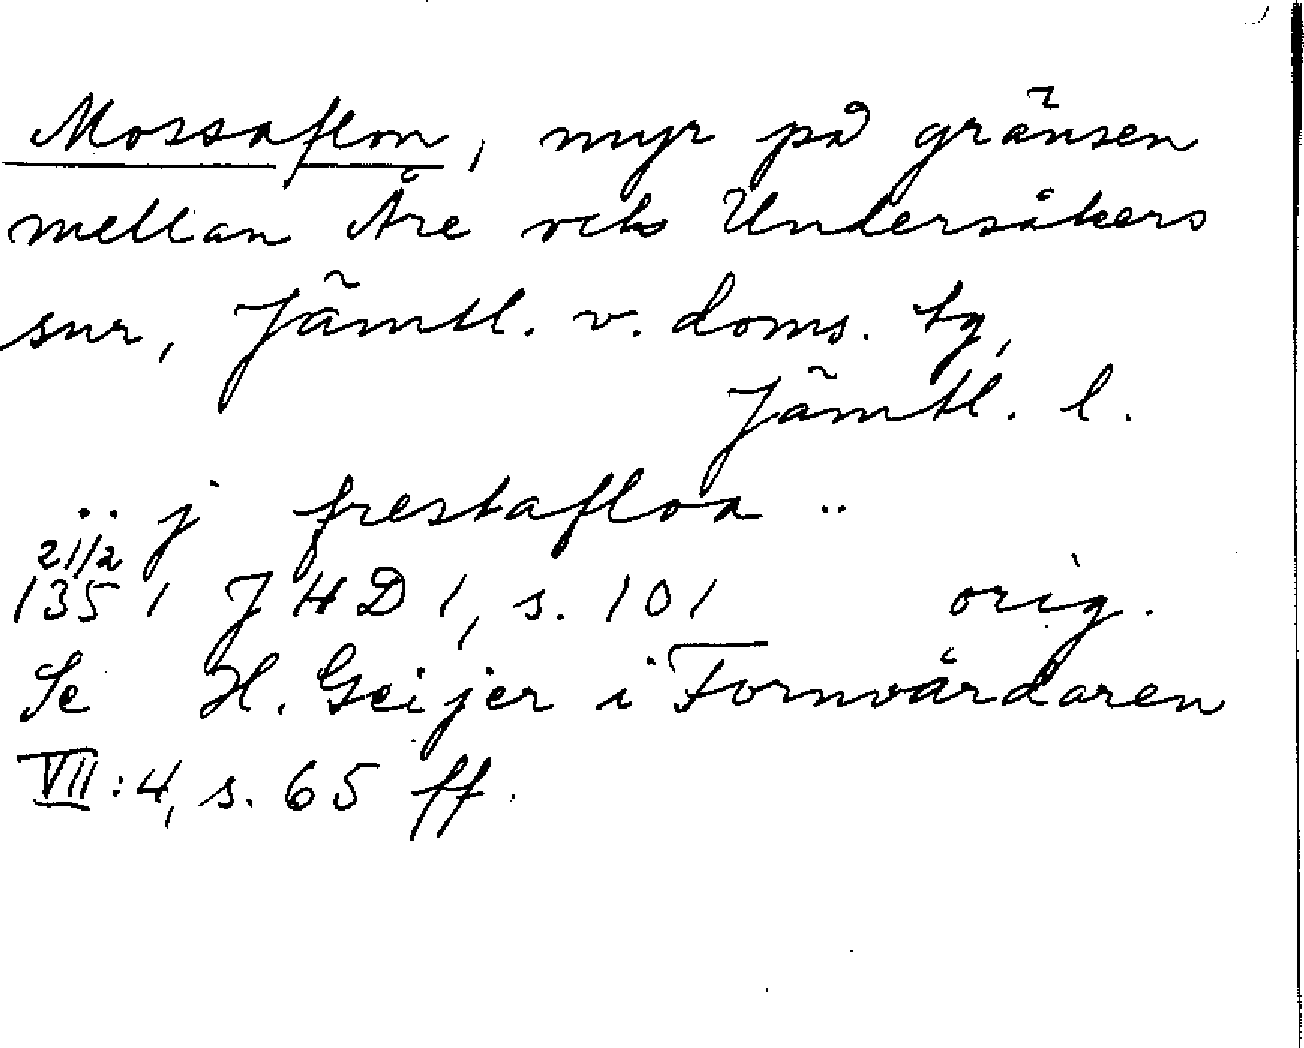 Mossaflon, myr på gränsen
mellan Åre och Undersåkers
snr, Jämtl. v. doms. tg,
Jämtl. l.
.. j frestafloa ..
21/2
1351 JHD 1, s. 101 orig.
Se H. Geijer i Fornvårdaren
VII: 4, s. 65 ff.